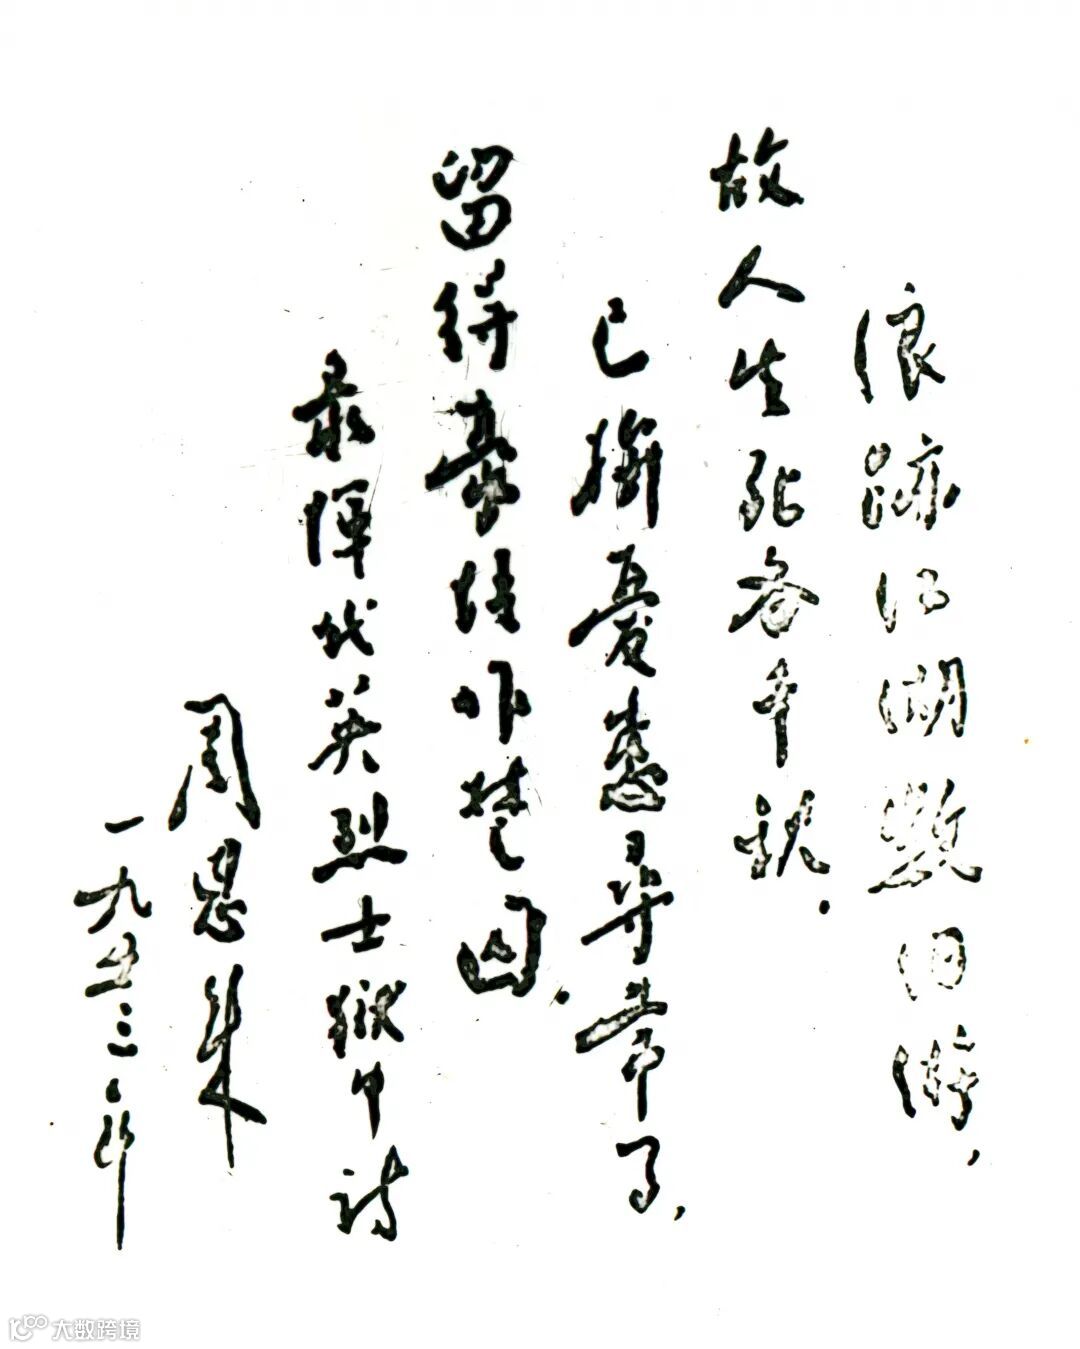 浪跡江湖數旧游，
故人生死各千秋．
已擯憂患尋常了，
留得豪情作楚囚．
录惲代英烈士獄中诗
周恩来
一九五三年
大数跨境